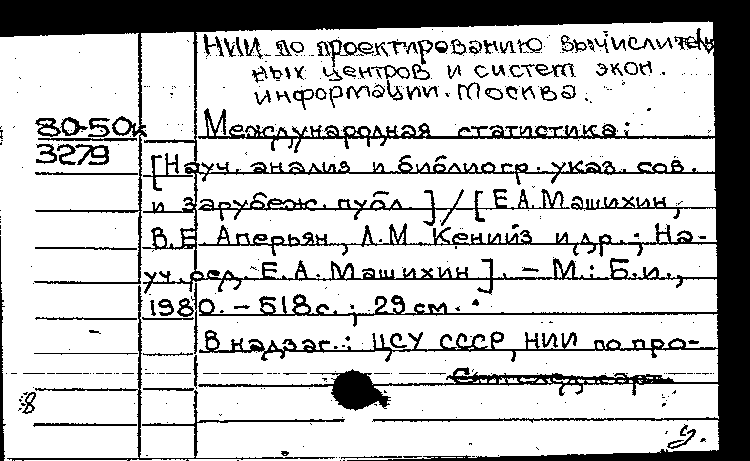 НИИ по проектированию вычислитель
ных центров и систем экон.
информации. Москва.
80-50к
3279
Международная статистика:
[Науч. анализ и библиогр. указ. сов.
и зарубеж. публ.] / [Е.А. Машихин,
В.Е. Аперьян, Л.М. Кенийз и др.; На-
уч. ред. Е.А. Машихин]. – М.: Б.и.,
1980. – 518 с.; 29 см.
В надзаг.: ЦСУ СССР, НИИ по про-
См. след. кар.
8
у.